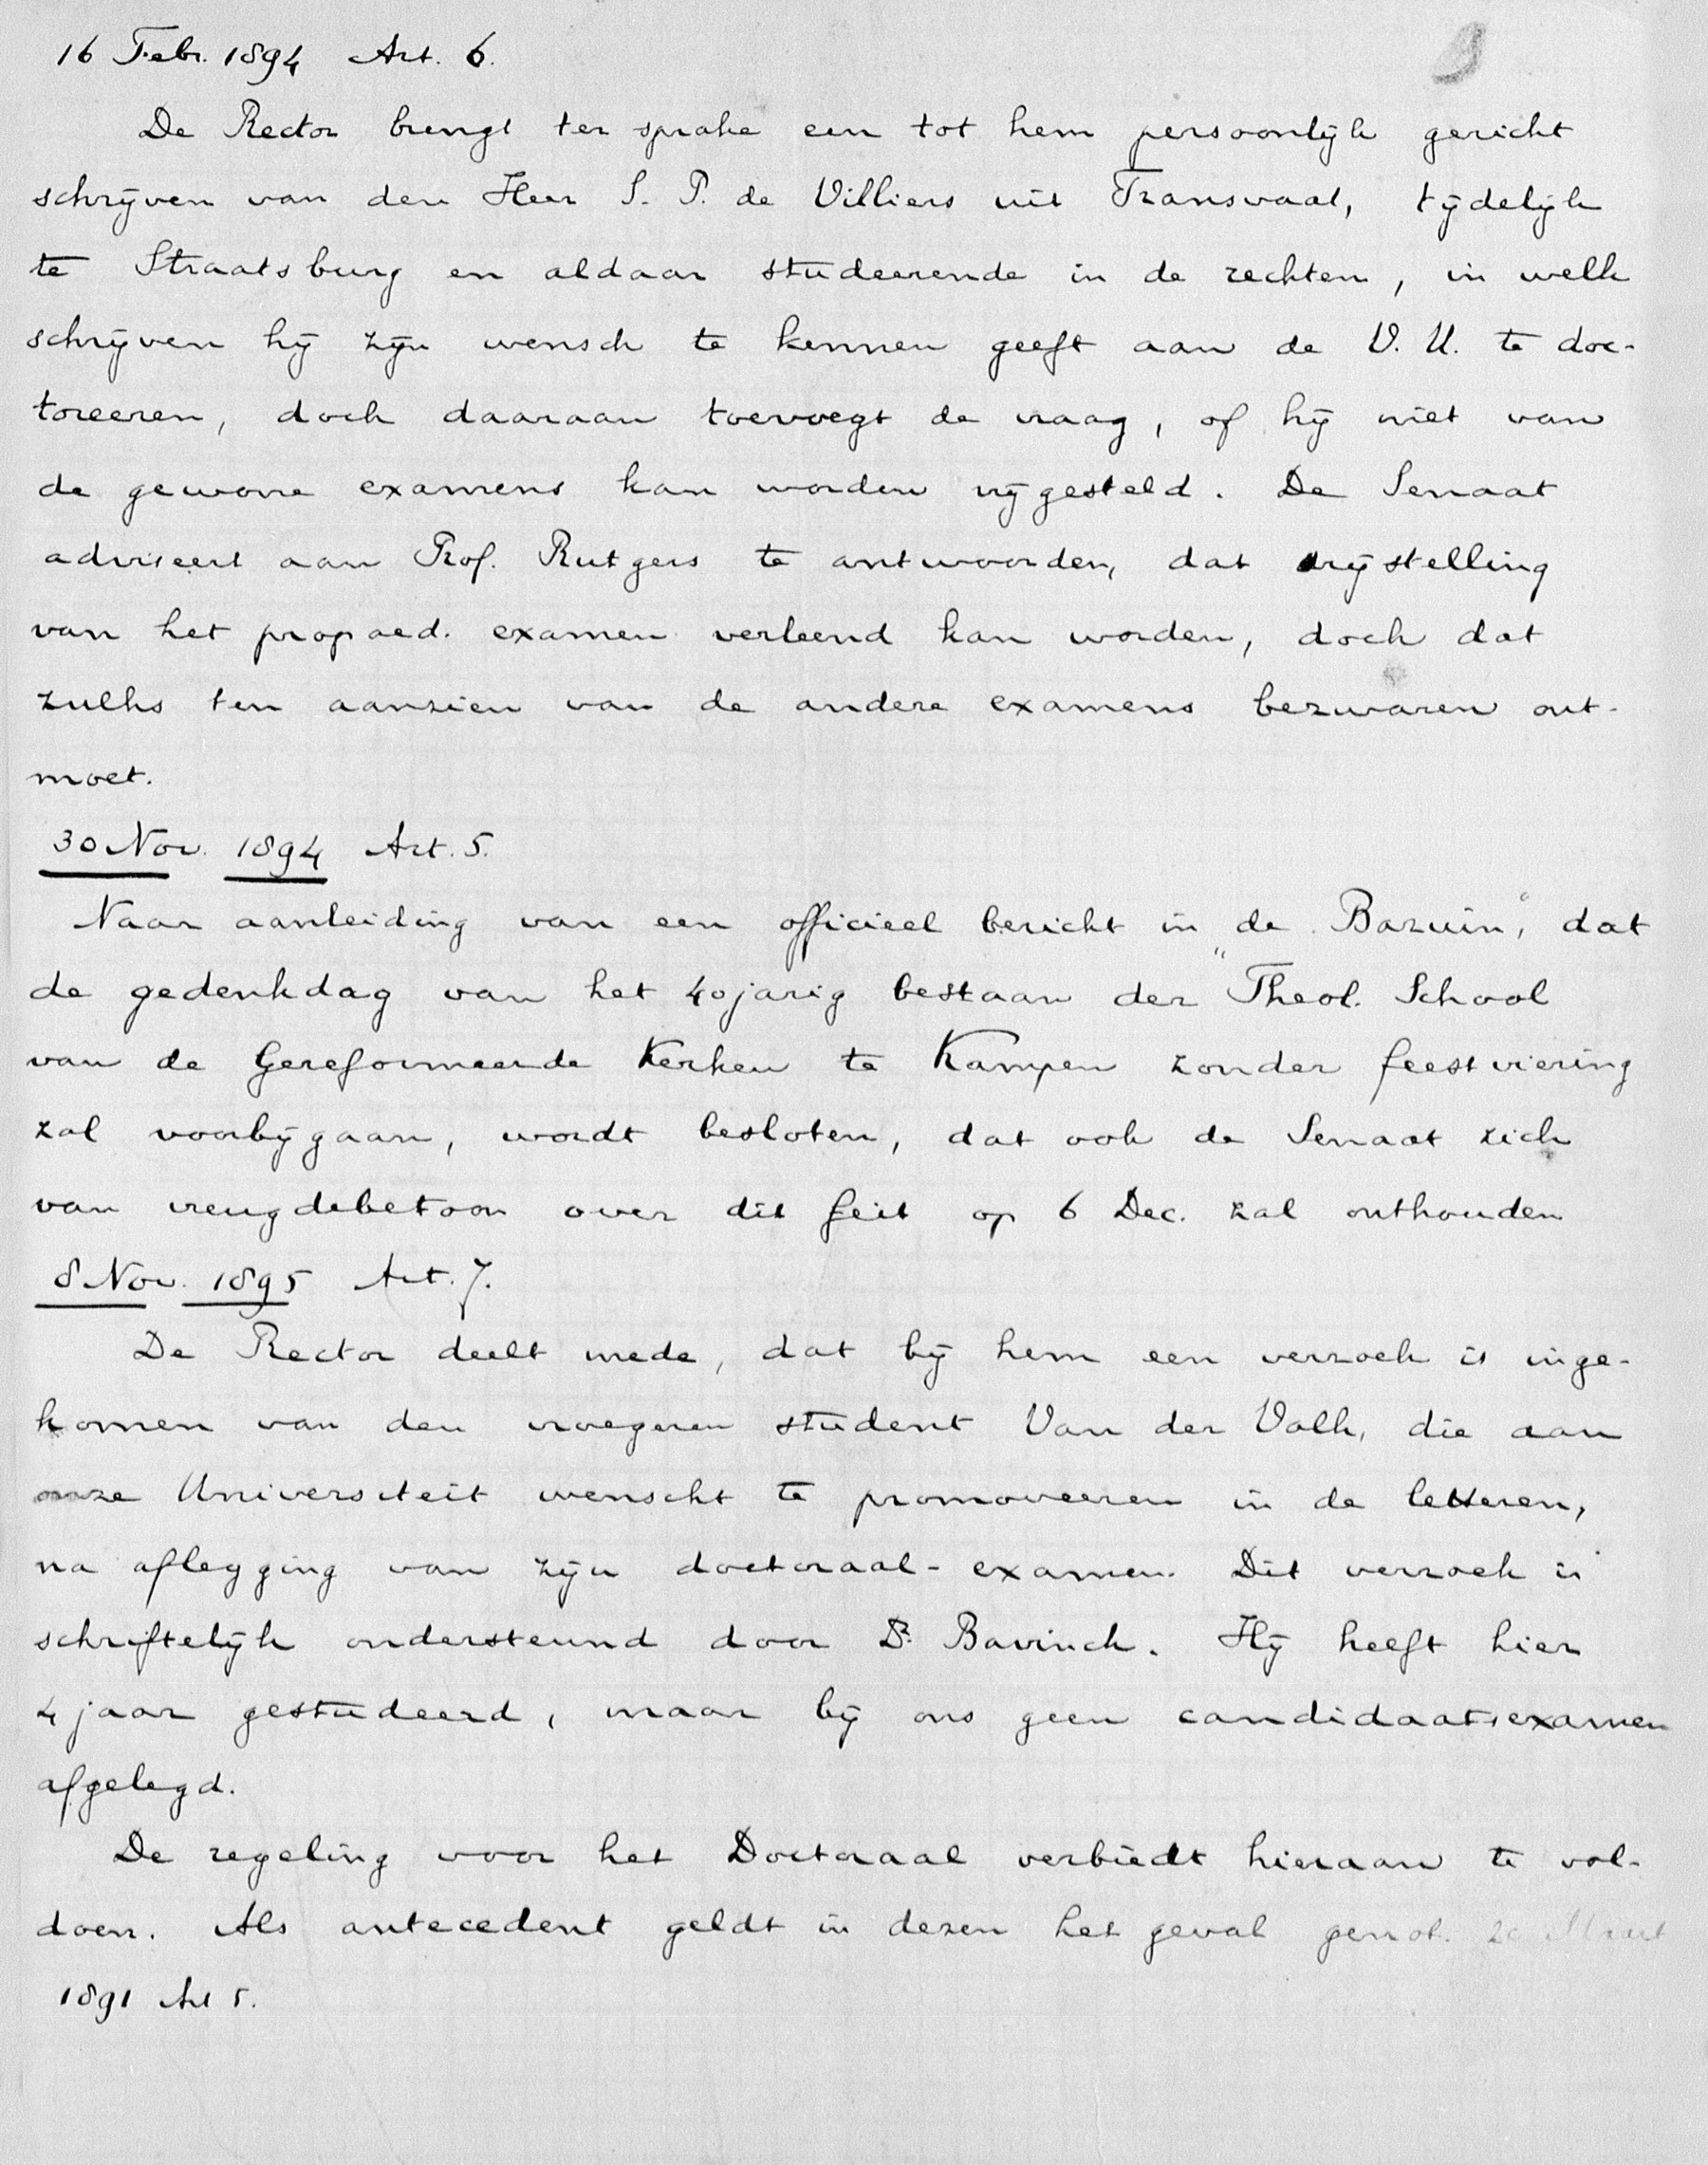 9
16 Febr. 1894 Art. 6.
De Rector brengt ter sprake een tot hem persoonlijk gericht
schrijven van den Heer S. P. de Villiers uit Transvaal, tijdelijk
te Straatsburg en aldaar studeerende in de rechten, in welk
schrijven hij zijn wensch te kennen geeft aan de V. U. te doc-
toreeren, doch daaraan toevoegt de vraag, of hij niet van
de gewone examens kan worden vrijgesteld. De Senaat
adviseert aan Prof. Rutgers te antwoorden, dat vrijstelling
van het propaed. examen verleend kan worden, doch dat
zulks ten aanzien van de andere examens bezwaren ont-
moet.
30 Nov. 1894 Art. 5.
Naar aanleiding van een officieel bericht in „de Bazuin", dat
de gedenkdag van het 40 jarig bestaan der Theol. School
van de Gereformeerde Kerken te Kampen zonder feestviering
zal voorbijgaan, wordt besloten, dat ook de Senaat zich
van vreugdebetoon over dit feit op 6 Dec. zal onthouden
8 Nov. 1895 Art. 7.
De Rector deelt mede, dat bij hem een verzoek is inge-
komen van den vroegeren student Van der Valk, die aan
onze Universiteit wenscht te promoveeren in de letteren,
na aflegging van zijn doctoraal-examen. Dit verzoek is
schriftelijk ondersteund door Dr. Bavinck. Hij heeft hier
4 jaar gestudeerd, maar bij ons geen candidaatsexamen
afgelegd.
De regeling voor het Doctoraal verbiedt hieraan te vol-
doen. Als antecedent geldt in dezen het geval genot. 20 Maart
1891 Art 5.